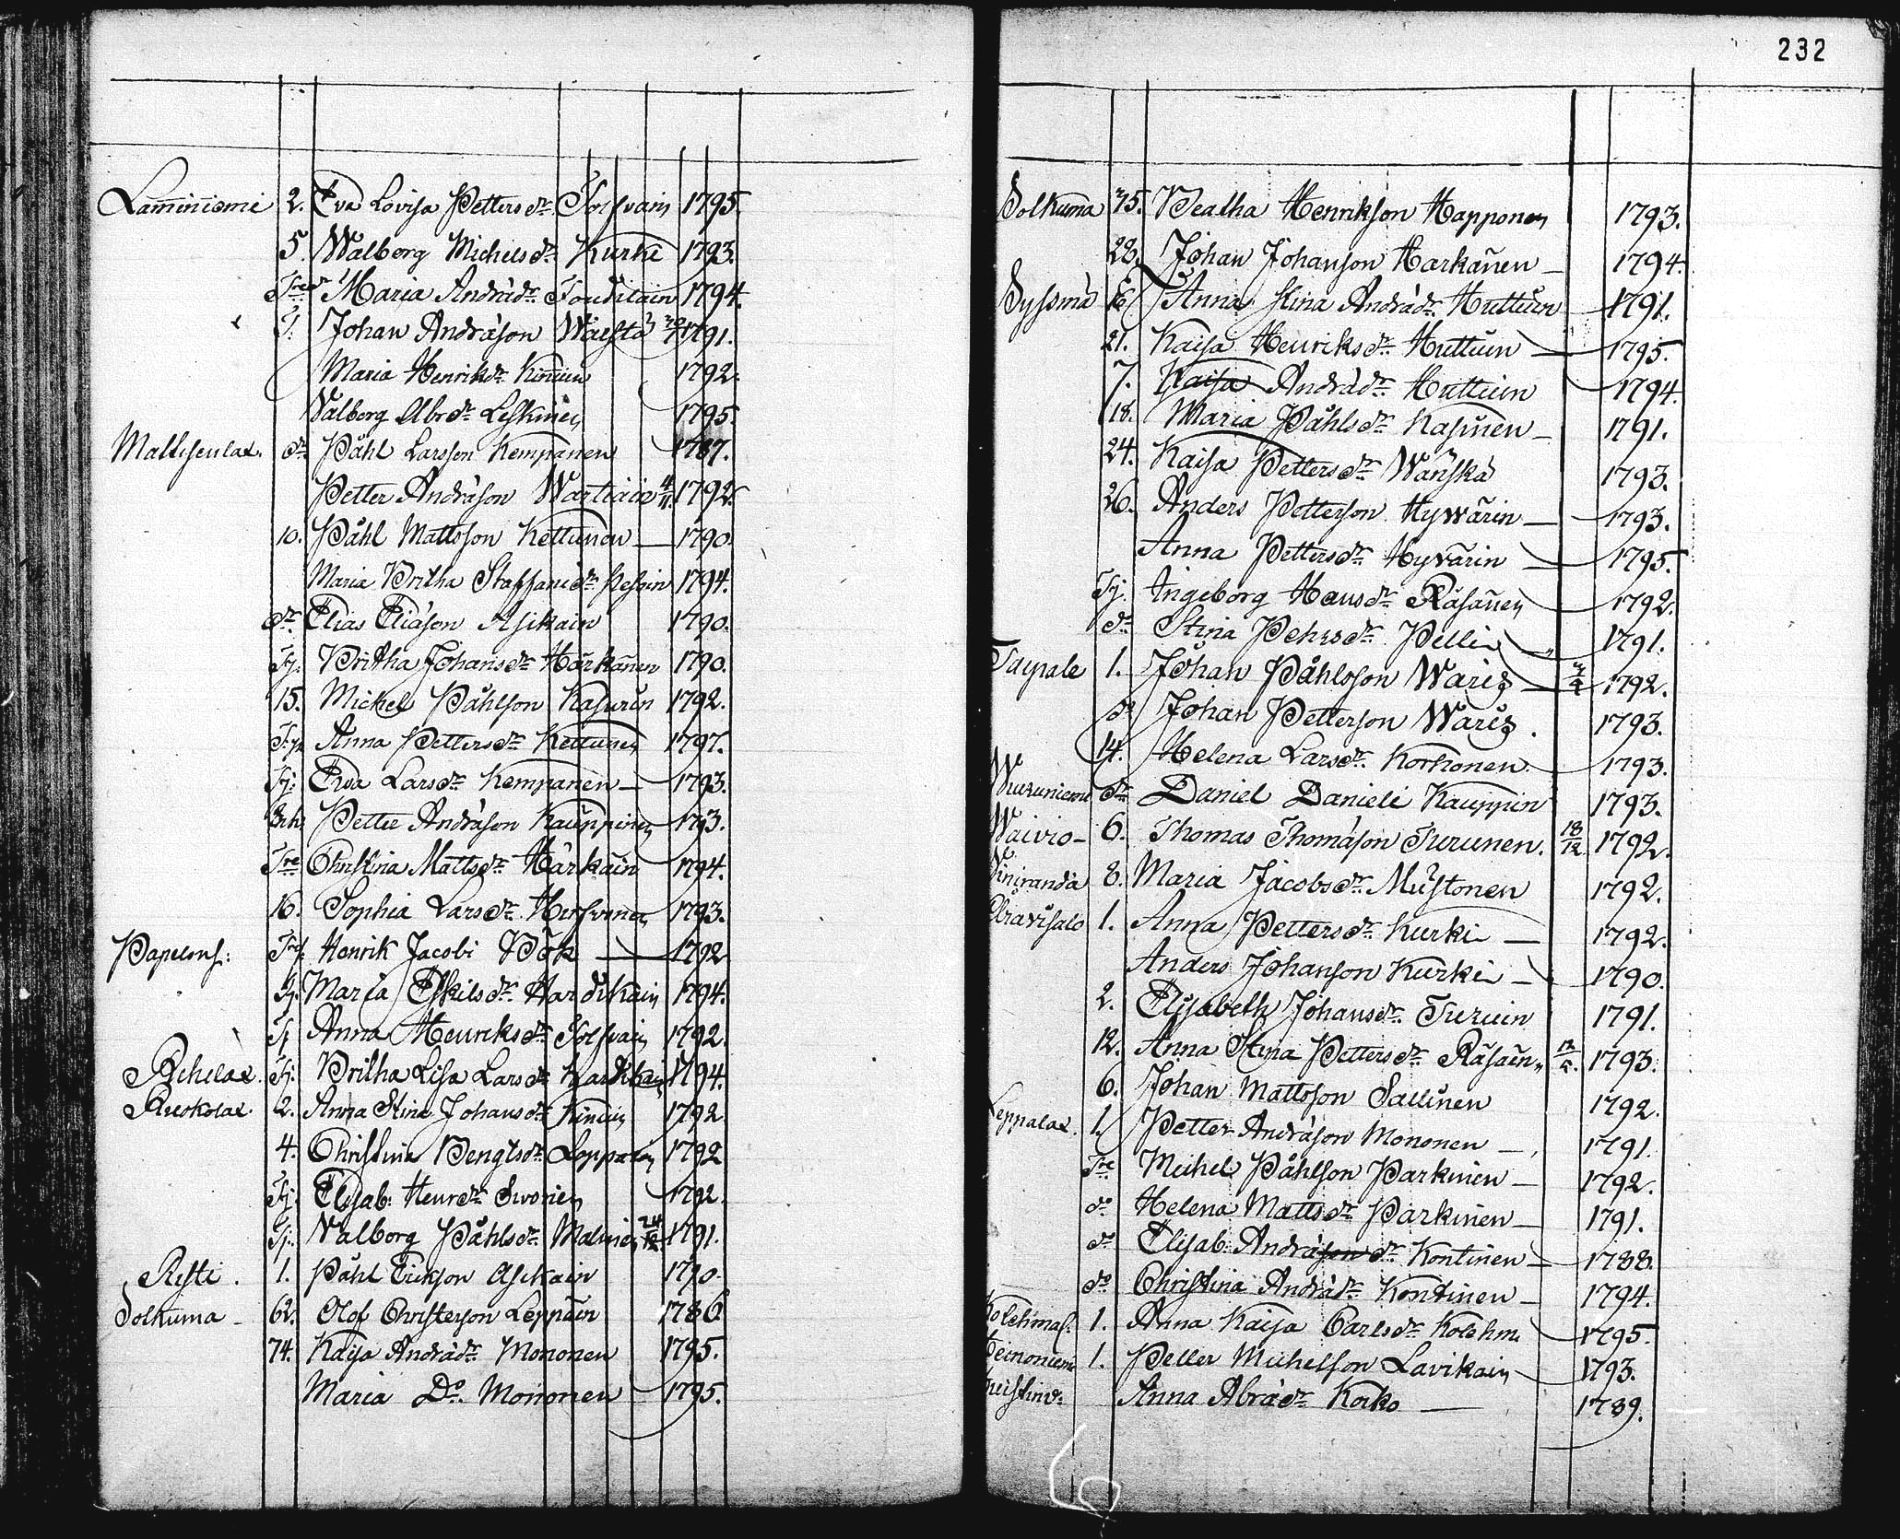 232
Laminniemi 2. Eva Lovisa Petters dr Tolfvain 1795.
5. Walborg Michels dr Kurki 1793.
Maria Andrä dr 1794.
Johan Andräson 1791.
Maria Henriks dr Kinnuin 1792.
Valborg Abr dr Leskinen 1795.
dr Påhl Larsson Kempanen 1787.
Petter Andräson Wartiain 4/11 1792.
10. Påhl Mattsson Kettunen 1790.
Maria Britha Staffans dr 1794.
dr Elias Eliäson Asikain 1790.
Tj. Britha Johans dr Härkänen 1790.
15. Mickel Påhlson Kasurin 1792.
Anna Petters dr Kettunen 1797.
Tj. Eva Lars dr Kempanen — 1793.
Petter Andräson Kauppinen 1793.
Christina Matts dr Härkäin 1794.
16. Sophia Lars dr 1793.
Henrik Jacobi Bök — 1792
Tj. Maria Eskils dr Hardikain 1794.
Tj Anna Henriks dr Tolfvain 1792.
Tj. Britha Lisa Lars dr Hardikain 1794.
Ruokolax. 2. Anna Stina Johans dr Kinnuin 1792
4. Christina Bengts dr Loppolen 1792
Tj. Elisab: Henr dr 1792.
Tj. Valborg Påhls dr Malinen 1791.
Risti. 1. Påhl Erikson Asikain 1790.
Solkuma — 62. Olof Christerson Leppäin 1786.
74. Kajsa Andrä dr Mononen 1795.
Maria Do. Mononen 1795.
Solkuma 75. Beatha Henrikson Happonen 1793.
28. Johan Johanson Harkänen — 1794.
Sysmä 16. Anna Stina Andrä dr Huttuin 1791.
21. Kaisa Henriks dr Huttuin — 1795.
7. Kaisa Andrä dr Huttuin 1794.
18. Maria Påhls dr Kasuinen — 1791.
24. Kaisa Petters dr Wänskä 1793.
26. Anders Petterson Hyvärin — 1793.
Anna Petters dr Hyvärin — 1795.
Tj. Ingeborg Hans dr Räsänen 1792.
dr Stina Pehrs dr Pellin „ 1791.
Taipale 1. Johan Påhlsson Waris — 1792.
dr Johan Petterson Waris. 1793.
14. Helena Lars dr Korhonen. 1793.
Wuoruniemi dr Daniel Danieli Kauppin 1793.
Waivio — 6. Thomas Thomäson Turunen. 18/12 1792.
Viniranda 8. Maria Jacobs dr Mustonen 1792.
Oravisalo 1. Anna Petters dr Kurki — 1792.
Anders Johanson Kurki — 1790.
2. Elisabeth Johans dr Turuin 1791.
12. Anna Stina Petters dr Räsäin „ 1793.
6. Johan Mattsson Sallinen 1792.
Leppalax. 1. Petter Andräson Mononen — 1791.
Michel Påhlson Parkinen — 1792.
do Helena Matts dr Parkinen — 1791.
do Elisab: Andräson dr Kontinen — 1788.
do Christina Andrä dr Kontinen — 1794.
Kolehmal. 1. Anna Kaisa Carls dr Kolehm. 1795.
Heinoniemi 1. Petter Michelson Lavikain — 1793.
Anna Abrä dr Korko — 1789.
6